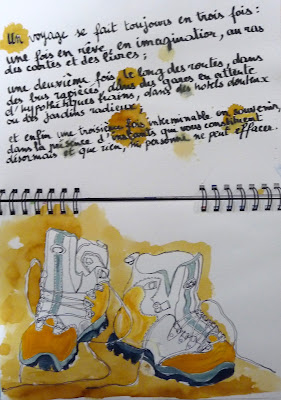 Un voyage se fait toujours en trois fois :
une fois en rêve, en imagination, au ras
des cartes et des livres ;
une deuxième fois le long des routes, dans
des bus rapiécés, dans des gares en attente
d'hypothétiques trains, dans des hôtels douteux
ou des jardins radieux ;
et enfin une troisième fois interminable en souvenir,
dans la présence d'instants qui vous constituent
désormais et que rien, ni personne ne peut effacer.